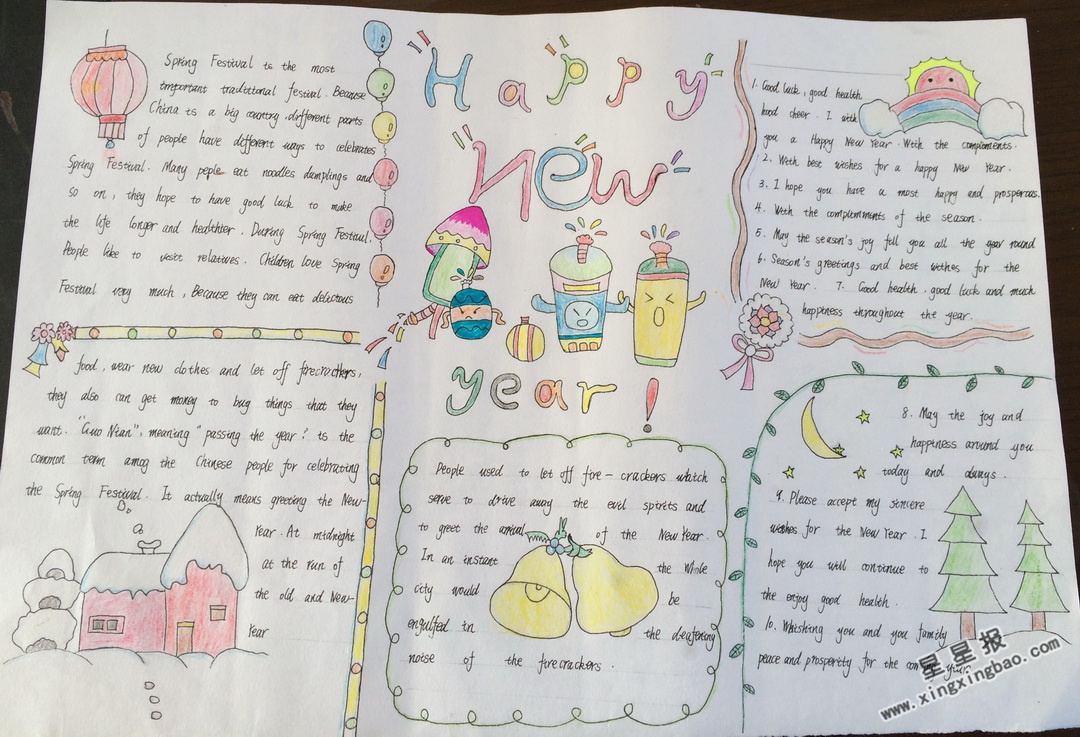 Happy
new
year!
Spring Festival is the most
important traditional festival. Because
China is a big country. different parts
of people have different ways to celebrates
Spring Festival. Many peple eat noodles dumplings and
so on, they hope to have good luck to make
the life longer and healthier. During Spring Festival.
People like to visit relatives. Children love Spring
Festival very much, Because they can eat delicious
food, wear new clothes and let off firecrackers,
they also can get money to bug things that they
want. "Guo Nian", meaning "passing the year." is the
common term amog the Chinese people for celebrating
the Spring Festival. It actually means greeting the New-
Year. At midnight
at the run of
the old and New-
Year
People used to let off fire-crackers watch
serve to drive away the evil spirits and
to greet the arrival of the New Year.
In an instant the Whole
city would be
engulfed in the deafering
noise of the firecrackers.
1. Good luck, good health
hood cheer. I wish
you a Happy New Year. With the compliments.
2. With best wishes for a happy New Year.
3. I hope you have a most happy and prosperous.
4. With the complimments of the season.
5. May the season's joy fill you all the year round
6. Season's greetings and best withes for the
New Year. 7. Good health. good luck and much
happiness throughout the year.
8. May the joy and
happiness around you
today and always.
9. Please accept my sincere
wishes for the New Year. I
hope you will continue to
the enjoy good health.
10. Whishing you and you family
peace and prosperity for the
星星报
www.xingxingbao.com